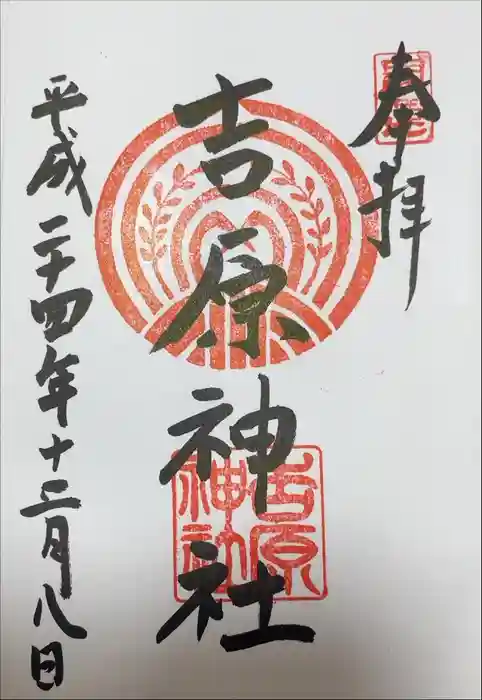 奉拝
吉原神社
吉原神社
平成二十四年十二月八日